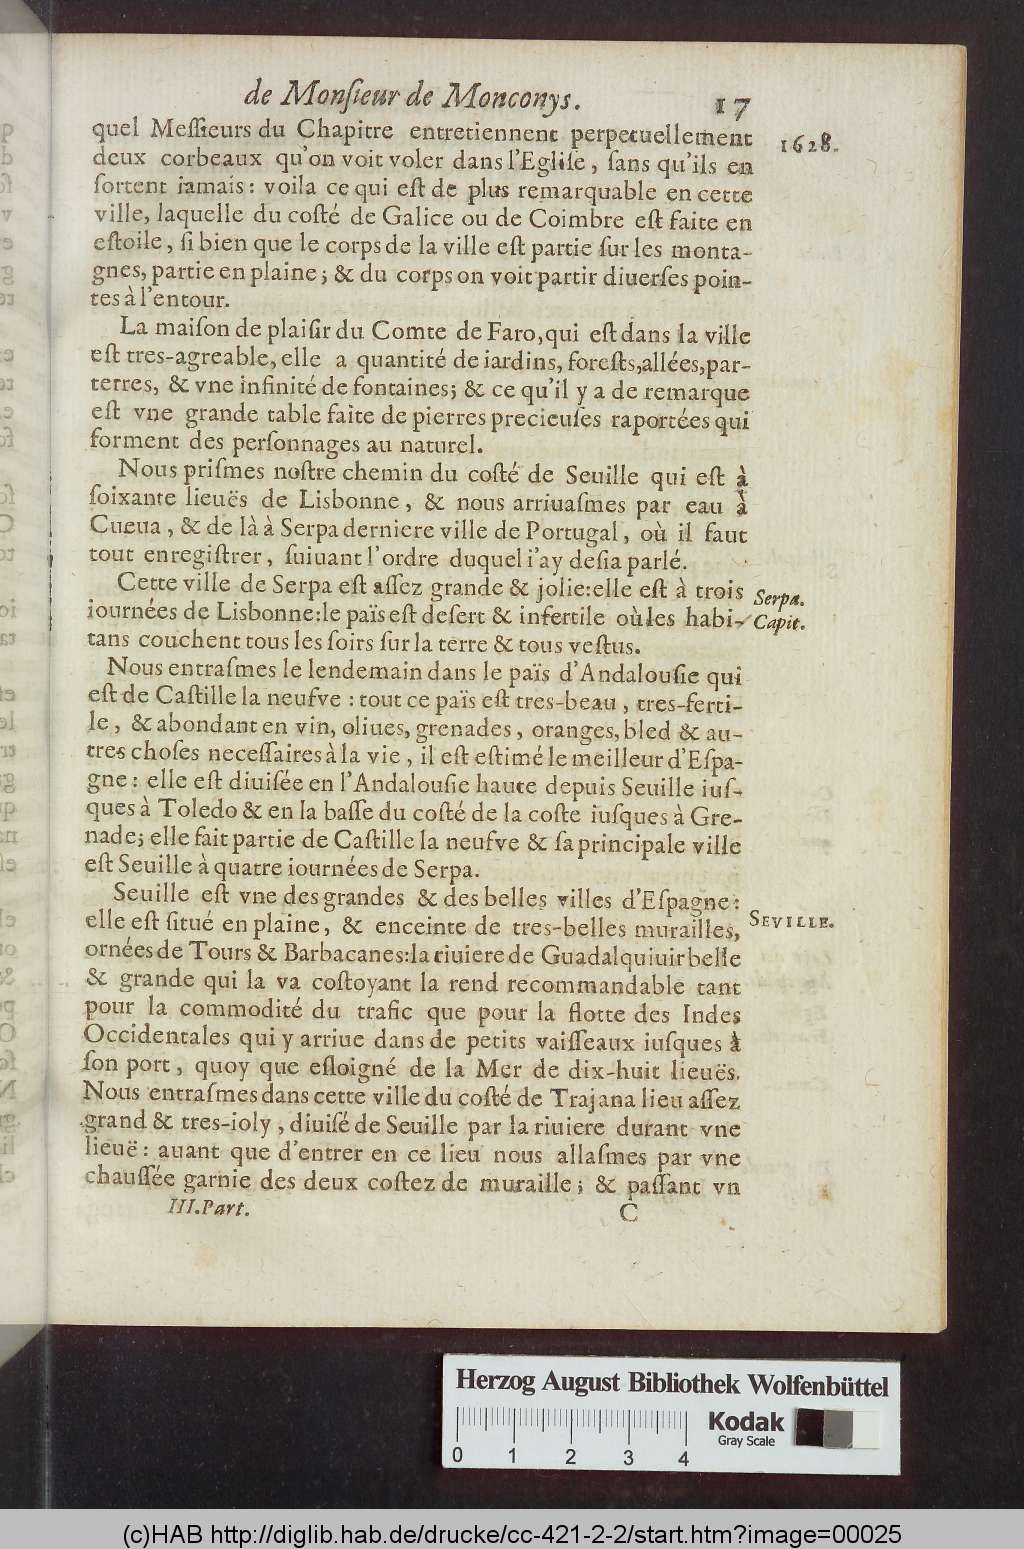 de Monſieur de Monconys. 17
quel Meſſieurs du Chapitre entretiennent perpetuellement
1628.
deux corbeaux qu'on voit voler dans l'Egliſe, ſans qu'ils en
ſortent iamais: voila ce qui eſt de plus remarquable en cette
ville, laquelle du coſté de Galice ou de Coimbre eſt faite en
eſtoile, ſi bien que le corps de la ville eſt partie ſur les monta-
gnes, partie en plaine; & du corps on voit partir diuerſes poin-
tes à l'entour.
La maiſon de plaiſir du Comte de Faro, qui eſt dans la ville
eſt tres-agreable, elle a quantité de iardins, foreſts, allées, par-
terres, & vne infinité de fontaines; & ce qu'il y a de remarque
eſt vne grande table faite de pierres precieuſes raportées qui
forment des perſonnages au naturel.
Nous priſmes noſtre chemin du coſté de Seuille qui eſt à
ſoixante lieuës de Lisbonne, & nous arriuaſmes par eau à
Cueua, & de là à Serpa derniere ville de Portugal, où il faut
tout enregiſtrer, ſuiuant l'ordre duquel i'ay deſia parlé.
Cette ville de Serpa eſt aſſez grande & jolie: elle eſt à trois
Serpa.
iournées de Lisbonne: le païs eſt deſert & infertile où les habi-
Capit.
tans couchent tous les ſoirs ſur la terre & tous veſtus.
Nous entraſmes le lendemain dans le païs d'Andalouſie qui
eſt de Caſtille la neufve: tout ce païs eſt tres-beau, tres-ferti-
le, & abondant en vin, oliues, grenades, oranges, bled & au-
tres choſes neceſſaires à la vie, il eſt eſtimé le meilleur d'Eſpa-
gne: elle eſt diuiſée en l'Andalouſie haute depuis Seuille iuſ-
ques à Toledo & en la baſſe du coſté de la coſte iuſques à Gre-
nade; elle fait partie de Caſtille la neufve & ſa principale ville
eſt Seuille à quatre iournées de Serpa.
Seuille eſt vne des grandes & des belles villes d'Eſpagne:
SEVILLE.
elle eſt ſitué en plaine, & enceinte de tres-belles murailles,
ornées de Tours & Barbacanes: la riuiere de Guadalquiuir belle
& grande qui la va coſtoyant la rend recommandable tant
pour la commodité du trafic que pour la flotte des Indes
Occidentales qui y arriue dans de petits vaiſſeaux iuſques à
ſon port, quoy que eſloigné de la Mer de dix-huit lieuës.
Nous entraſmes dans cette ville du coſté de Trajana lieu aſſez
grand & tres-ioly, diuiſé de Seuille par la riuiere durant vne
lieuë: auant que d'entrer en ce lieu nous allaſmes par vne
chauſſée garnie des deux coſtez de muraille; & paſſant vn
III. Part. C
Herzog August Bibliothek Wolfenbüttel
Kodak
Gray Scale
0 1 2 3 4
(c)HAB http://diglib.hab.de/drucke/cc-421-2-2/start.htm?image=00025